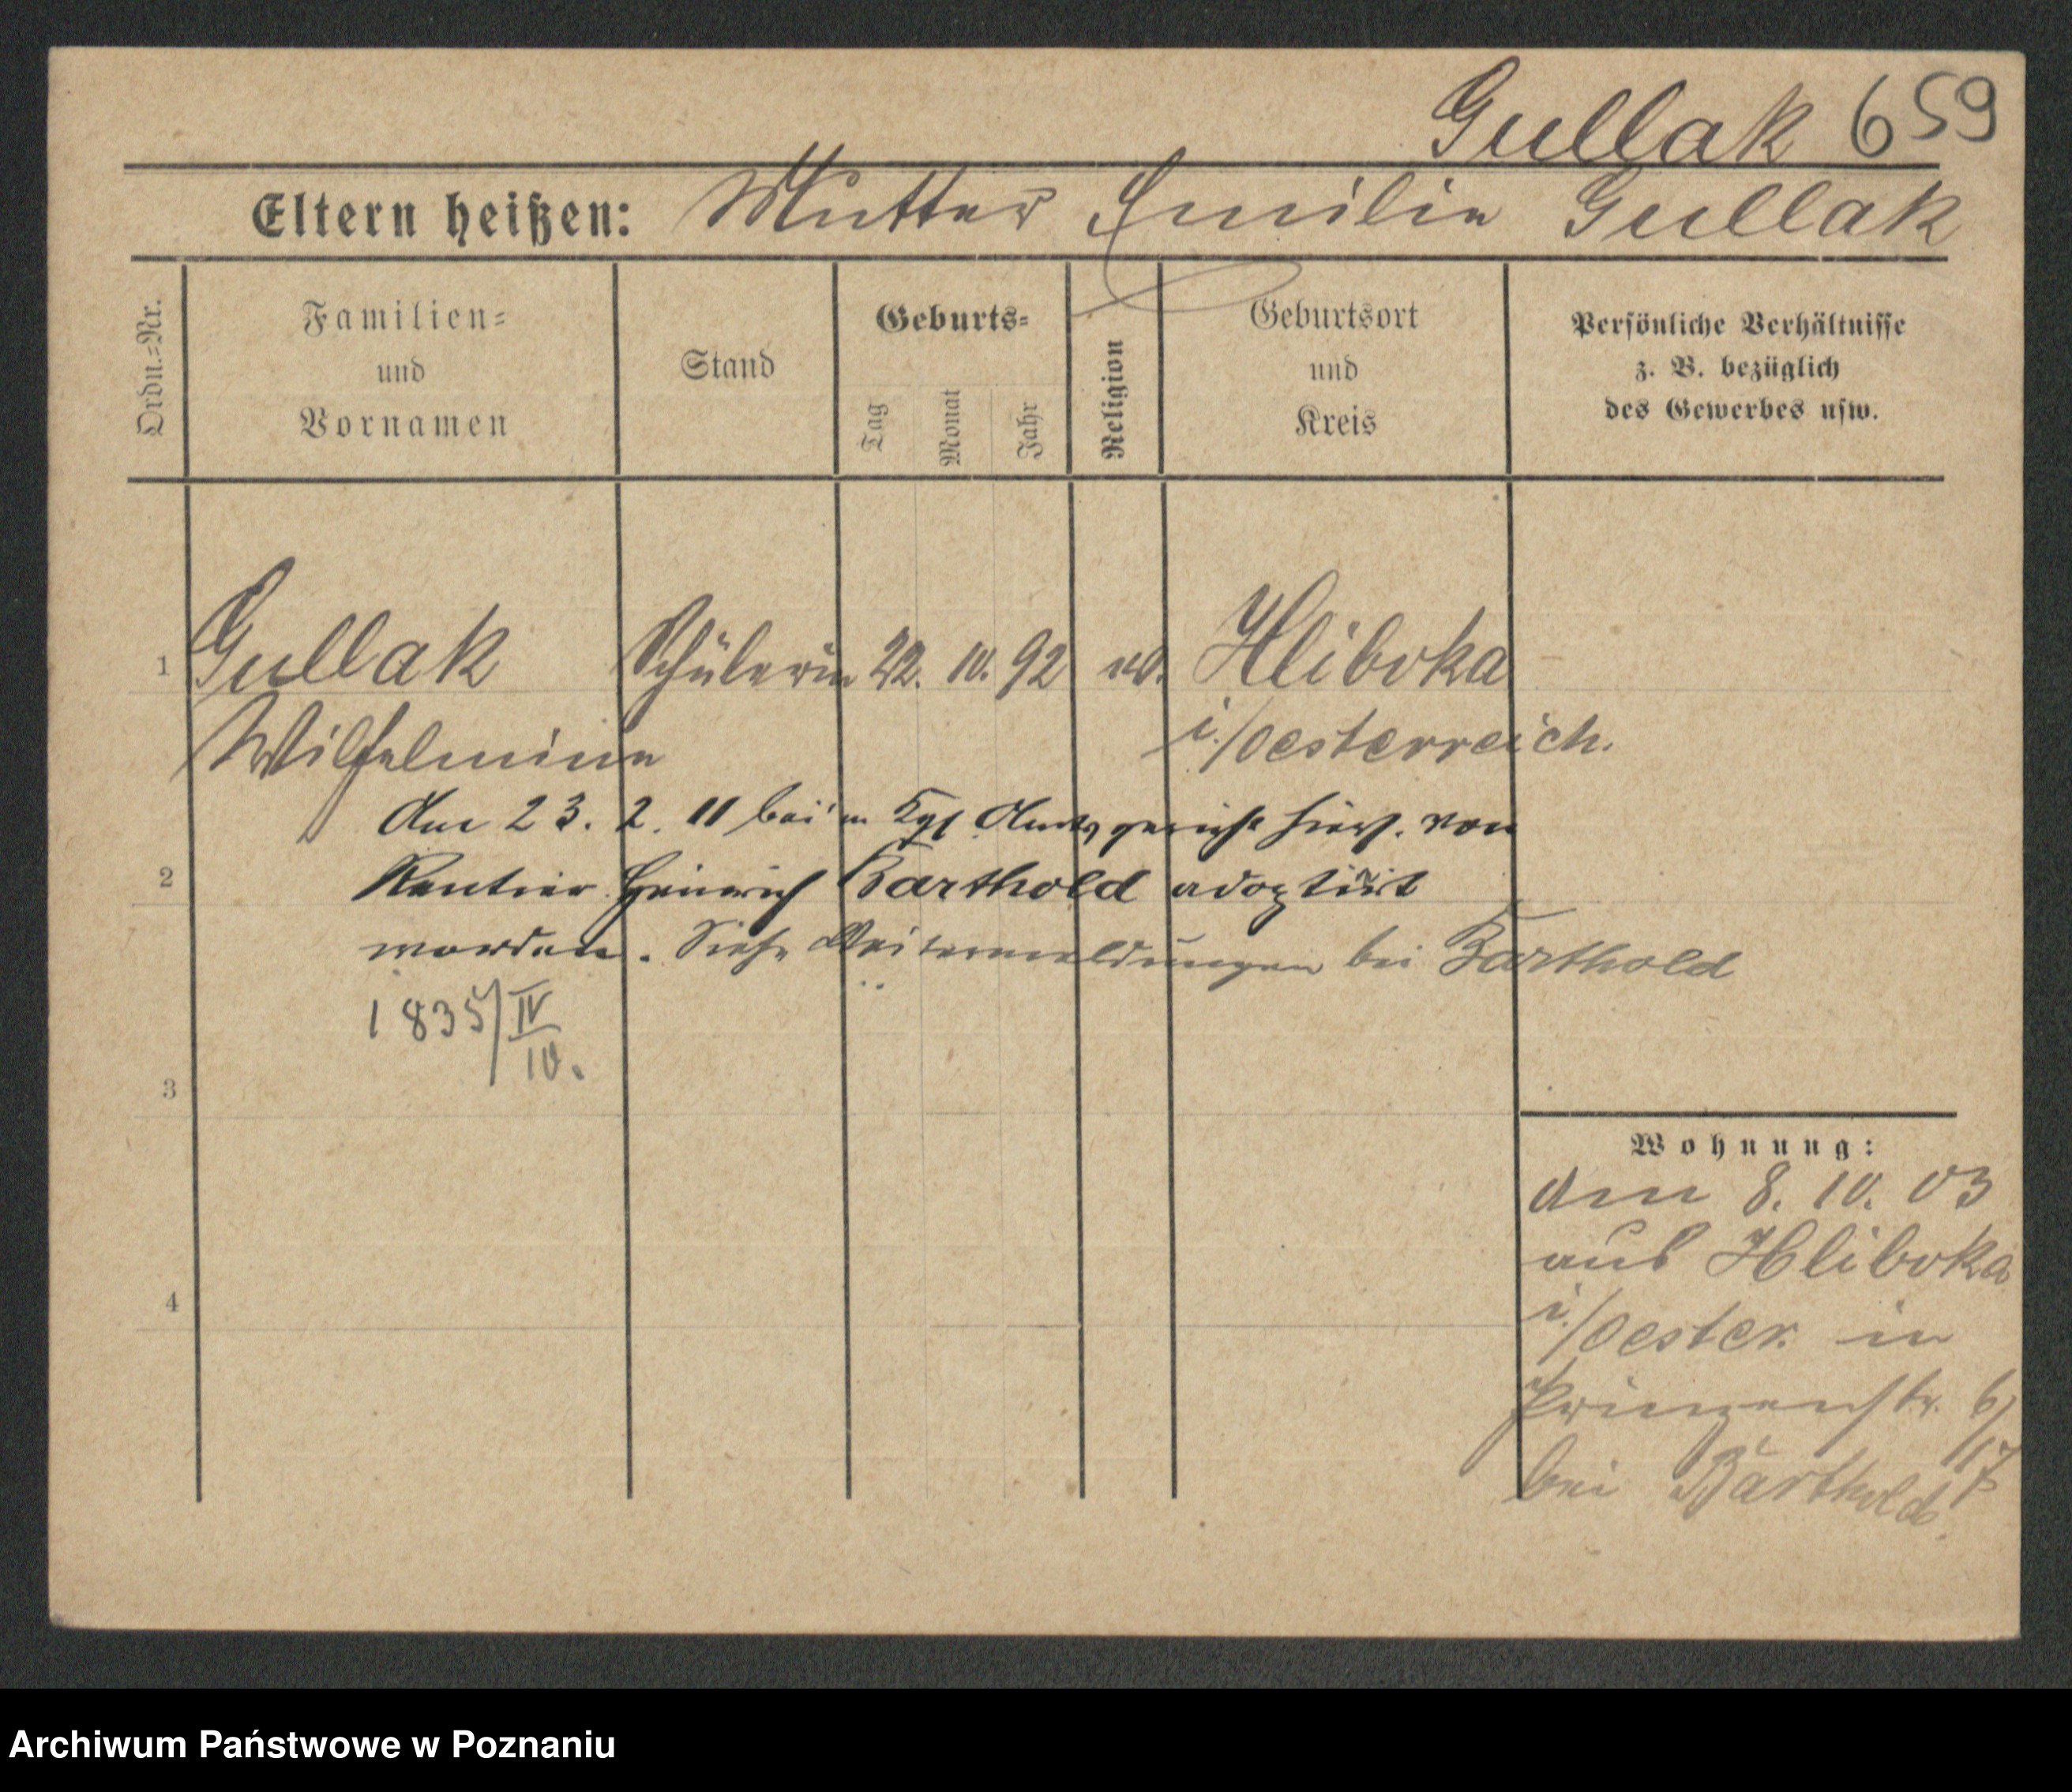 Gullak 659
Eltern heißen: Mutter Emilie Gullak
Ordn.=Nr.
Familien=
und
Vornamen
Stand
Geburts=
Tag
Monat
Jahr
Religion
Geburtsort
und
Kreis
Persönliche Verhältnisse
z. B. bezüglich
des Gewerbes usw.
1 Gullak Schülerin 22. 10. 92 ev. Hliboka
Wilhelmine i./Oesterreich.
Am 23. 2. 11 bei'm Kgl Amtsgericht hier. von
2 Rentier Heinrich Barthold adoptirt
worden. Siehe Weitermeldungen bei Barthold
1835/IV
10.
3
4
Wohnung:
Am 8. 10. 03
aus Hliboka
i./Oester. in
Prinzenstr. 6/
17
bei Barthold.
Archiwum Państwowe w Poznaniu